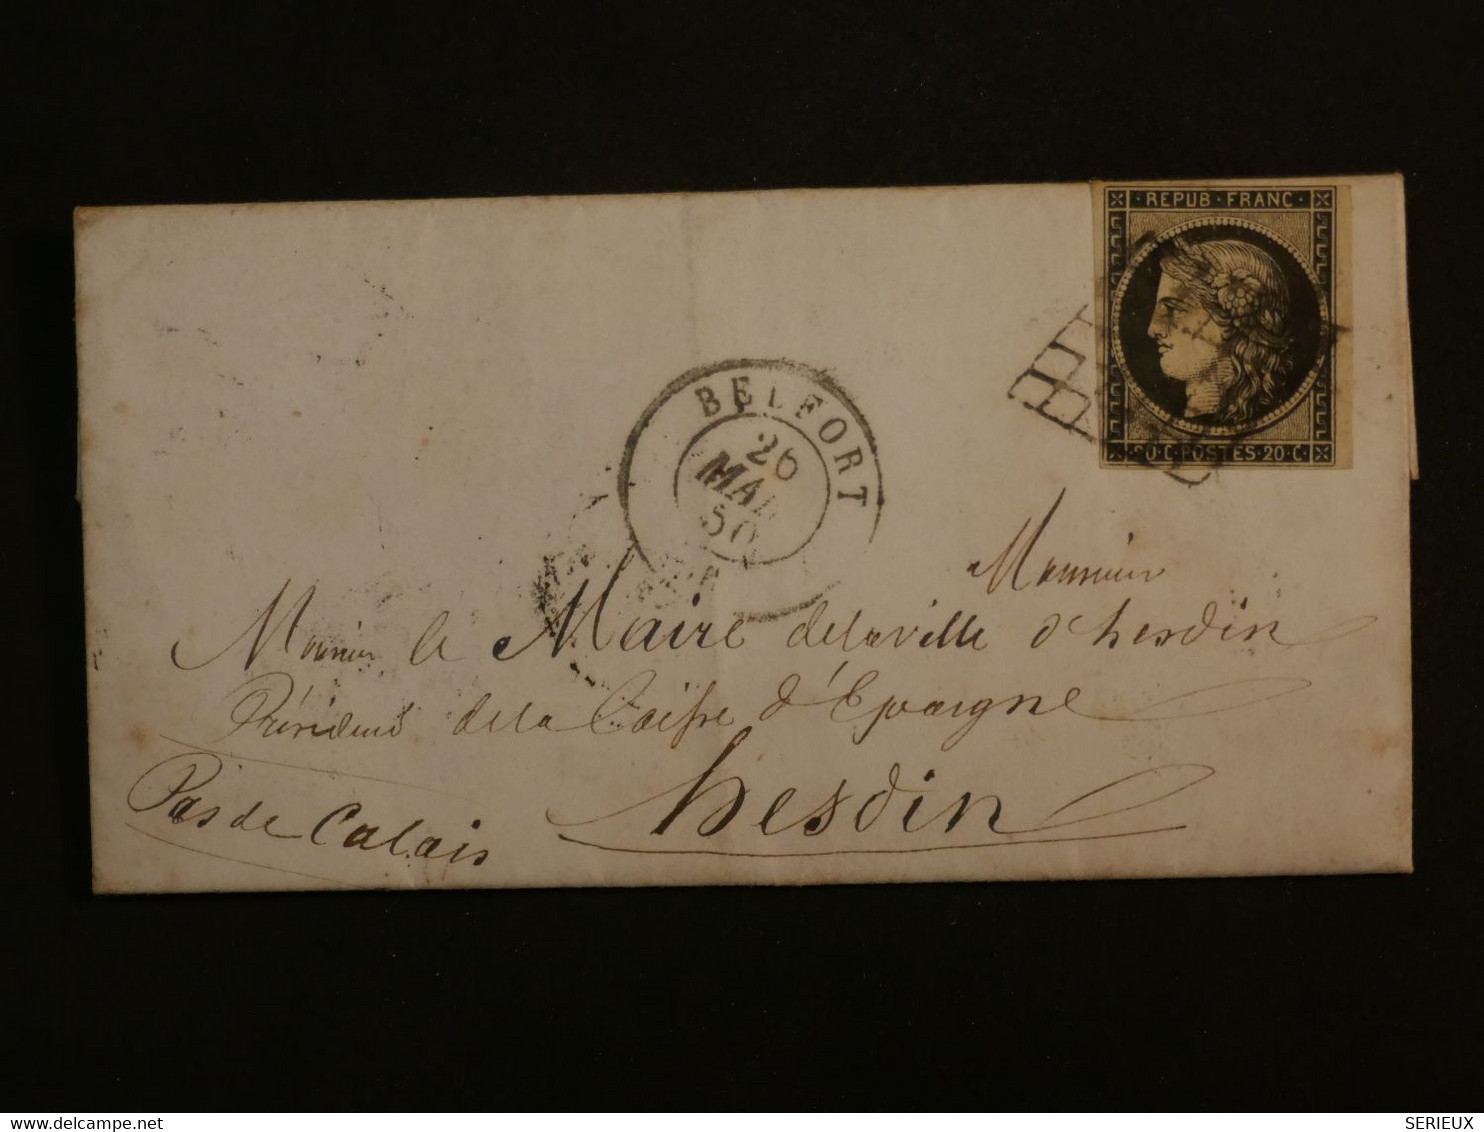 REPUB · FRANC ·
20 · C · POSTES · 20 · C ·
BELFORT
26
MAR
50
Monsieur
Monsieur le Maire de la ville d'hesdin
Président de la Caisse d'Epargne
hesdin
Pas de Calais
delcampe.net
SERIEUX